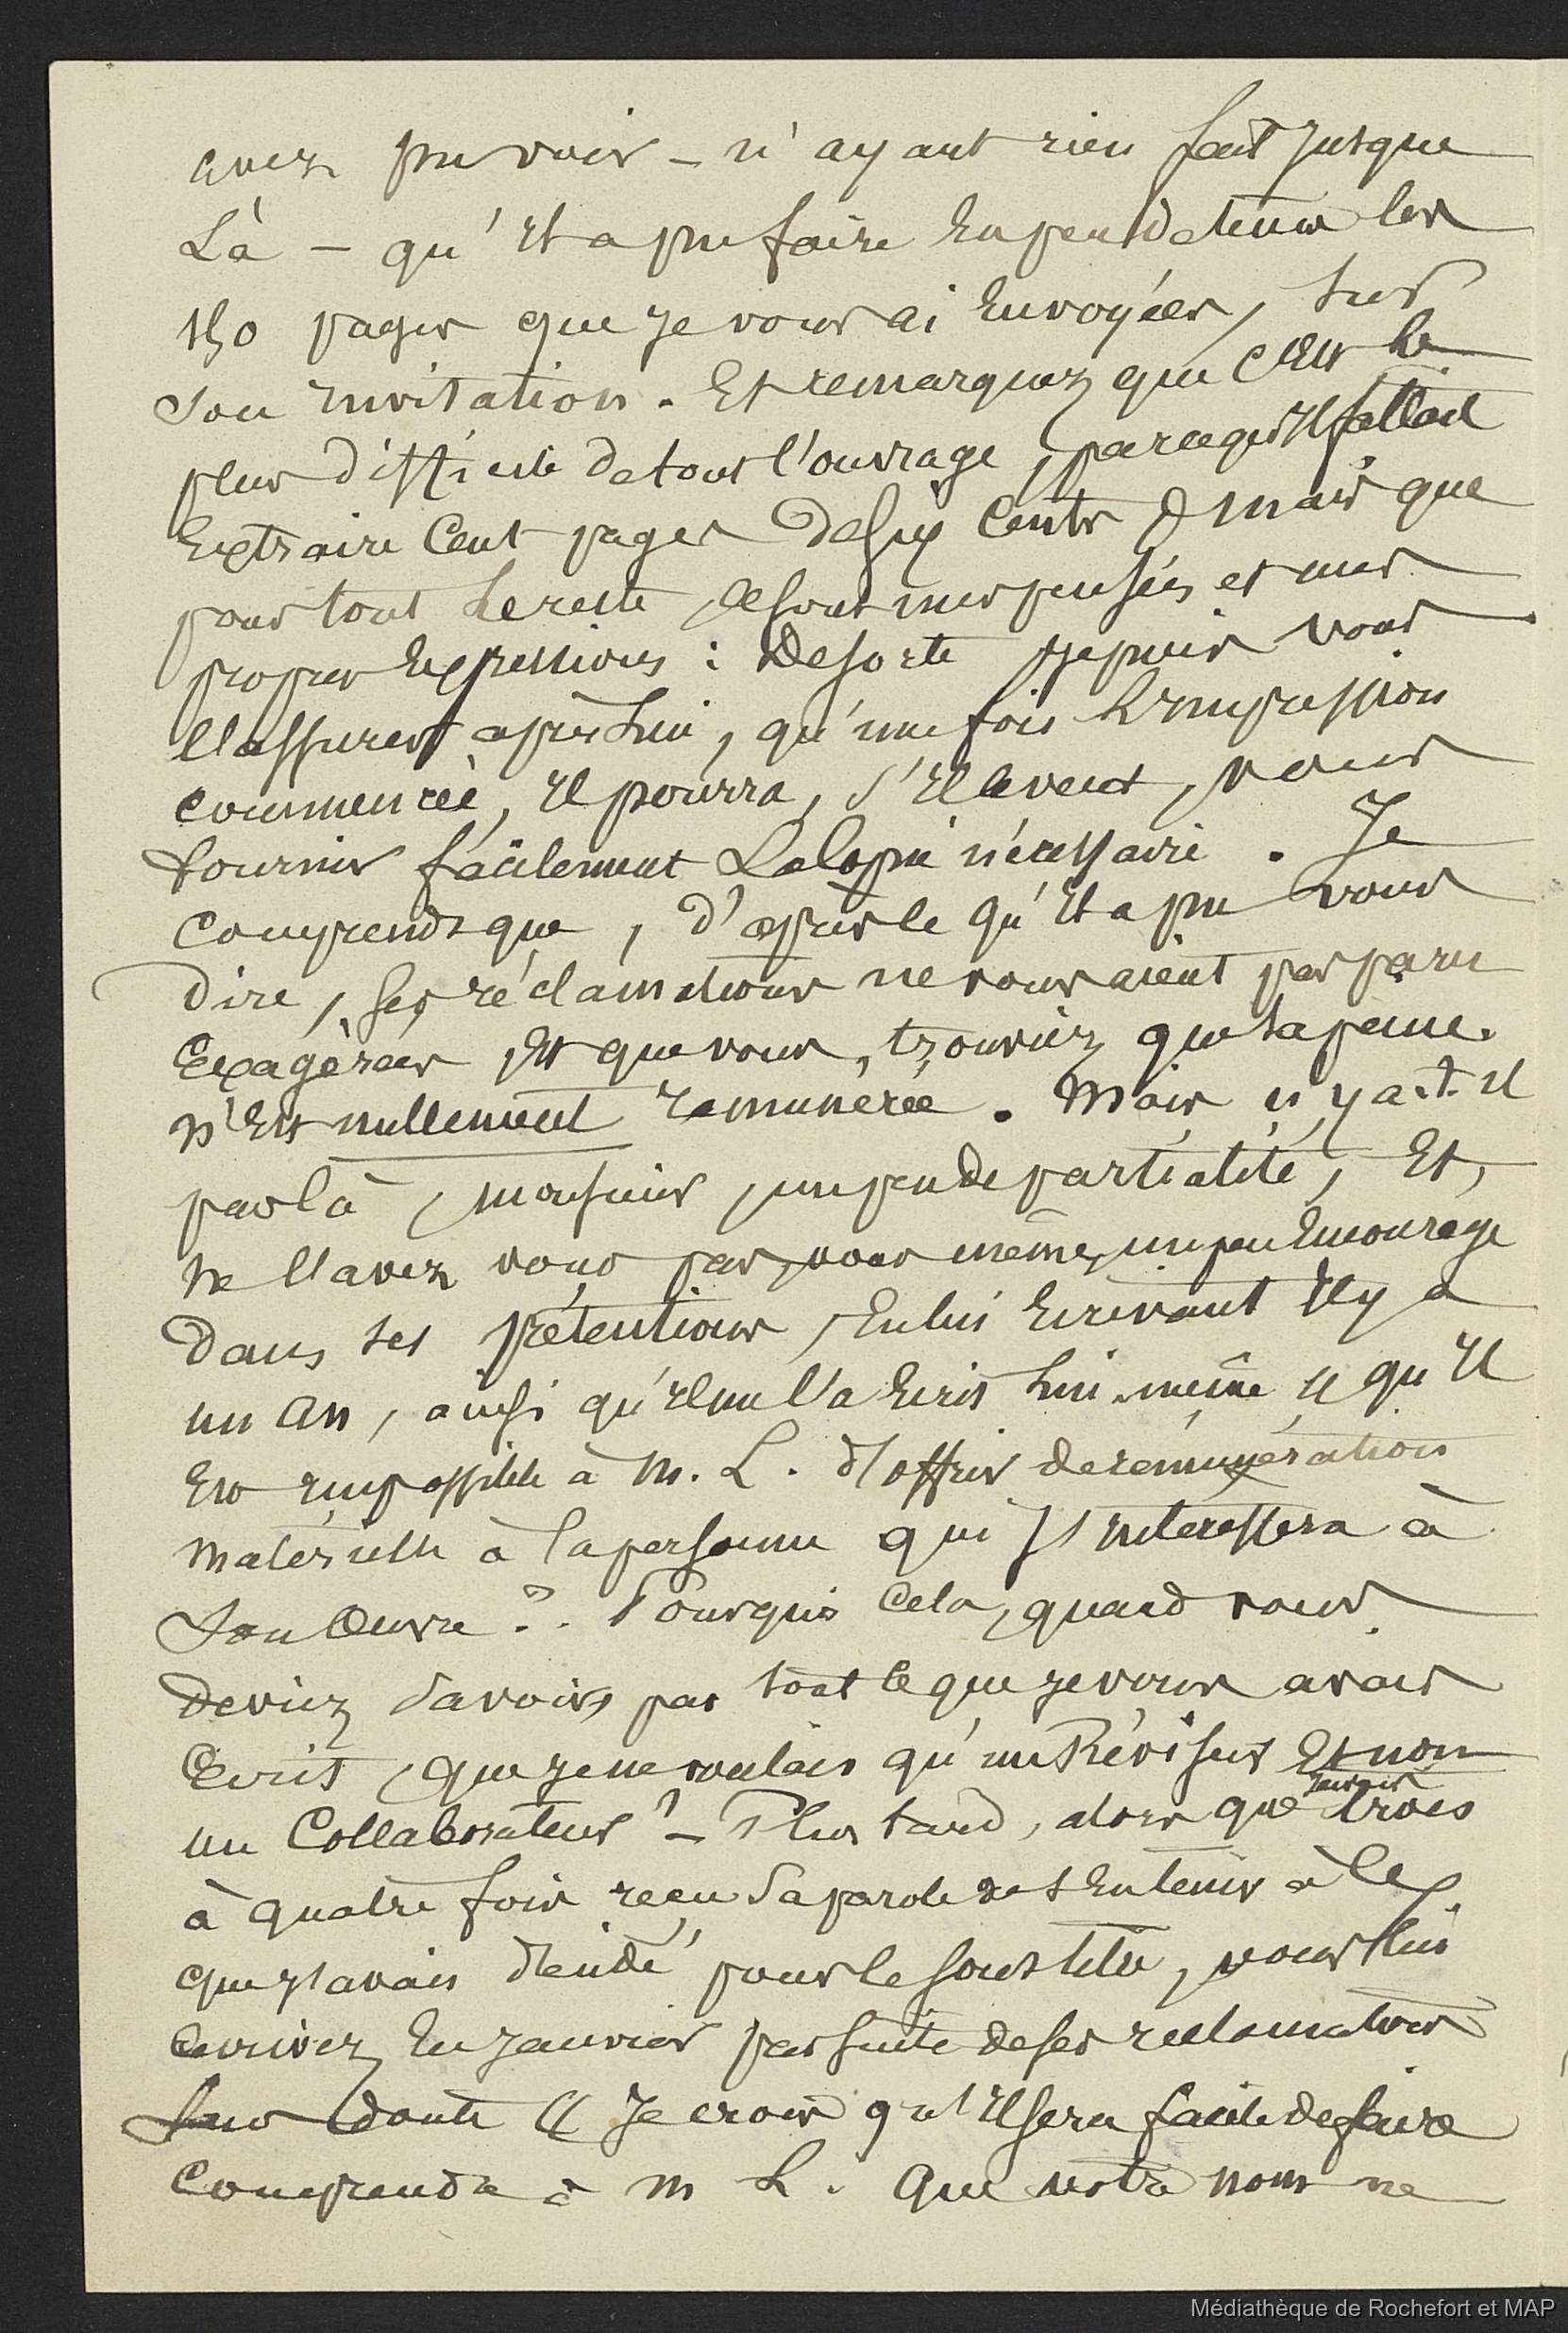 avez pu voir – n'ayant rien fait jusque
Là – qu'Il a pu faire En peu de tems les
150 pages que je vous ai Envoyées, sur
son Invitation. Et remarquez que c'Est le
plus difficile de tout l'ouvrage, parceque Il fallait
Extraire Cent pages de Six Cents & mais que
pour tout Le reste, ce sont mes pensées et mes
propres Expressions : De sorte je puis vous
l'assurer après Lui, qu'une fois L'Impression
commencée, Il pourra, s'Il le veut, vous
fournir facilement La Copie nécessaire. Je
comprends que, d'après ce qu'Il a pu vous
dire, ses réclamations ne vous aient pas paru
Exagérées, Et que vous, trouviez que sa peine
n'Est nullement rémunérée. Mais n'y a-t-Il
par là, monsieur, un peu de partialité, Et,
ne l'avez vous pas, vous même, un peu Encouragé
dans ses prétentions, En lui Ecrivant Il y a
un An, ainsi qu'Il me l'a Ecrit Lui-même « qu'Il
Est Impossible à M. L. d'offrir de rémunération
matérielle à la personne qui s'Intéressera à
son Œuvre ? . Pourquoi Cela, quand vous
deviez savoir, par tout ce que je vous avais
Ecrit, que je ne voulais qu'un Réviseur Et non
un Collaborateur ? – Plus tard, alors que
j'avais
trois
à quatre fois reçu Sa parole de s'En tenir à Ce
que j'avais décidé pour le sous titre, vous Lui
écrivez En Janvier par suite de ses réclamations
Sans doute « Je crois qu'Il sera facile de faire
Comprendre à M L. Que votre nom ne
Médiathèque de Rochefort et MAP